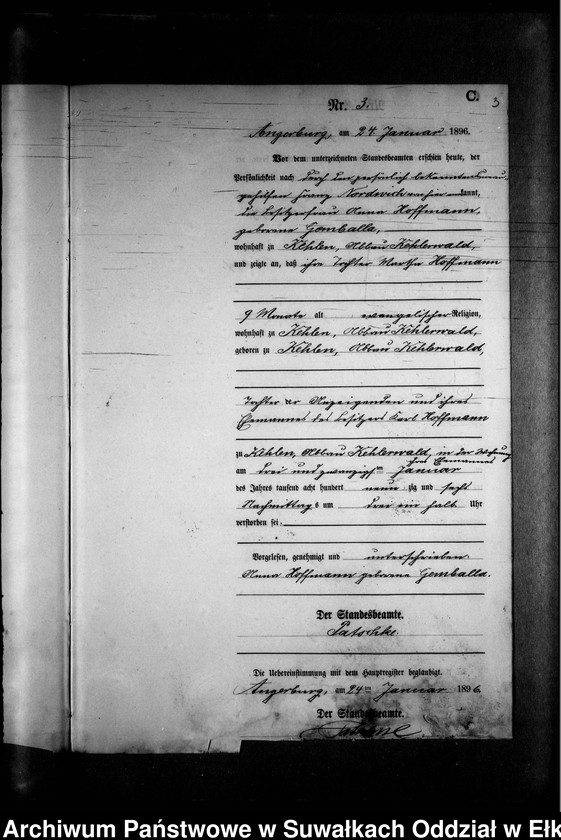 C.
3
Nr. 3.
Angerburg, am 24 Januar 1896.
Vor dem unterzeichneten Standesbeamten erschien heute, der
Persönlichkeit nach durch den persönlich bekannten
gehilfen Franz Nordwich von hier kannt,
die Besitzerfrau Anna Hoffmann,
geborene Gemballa,
wohnhaft zu Kehlen, Abbau Kehlerwald,
und zeigte an, daß ihre Tochter Martha Hoffmann
9 Monate alt evangelischer Religion,
wohnhaft zu Kehlen, Abbau Kehlerwald,
geboren zu Kehlen, Abbau Kehlerwald,
Tochter der Anzeigenden und ihres
Ehemannes des Besitzers Karl Hoffmann
zu Kehlen, Abbau Kehlerwald, in der Wohnung
ihres Ehemannes
am drei und zwanzigsten Januar
des Jahres tausend acht hundert neun zig und sechs
Nachmittags um drei ein halb Uhr
verstorben sei.
Vorgelesen, genehmigt und unterschrieben
Anna Hoffmann geborene Gemballa.
Der Standesbeamte.
Patschke.
Die Uebereinstimmung mit dem Hauptregister beglaubigt.
Angerburg, am 24ten Januar 1896
Der Standesbeamte.
Archiwum Państwowe w Suwałkach Oddział w Ełk